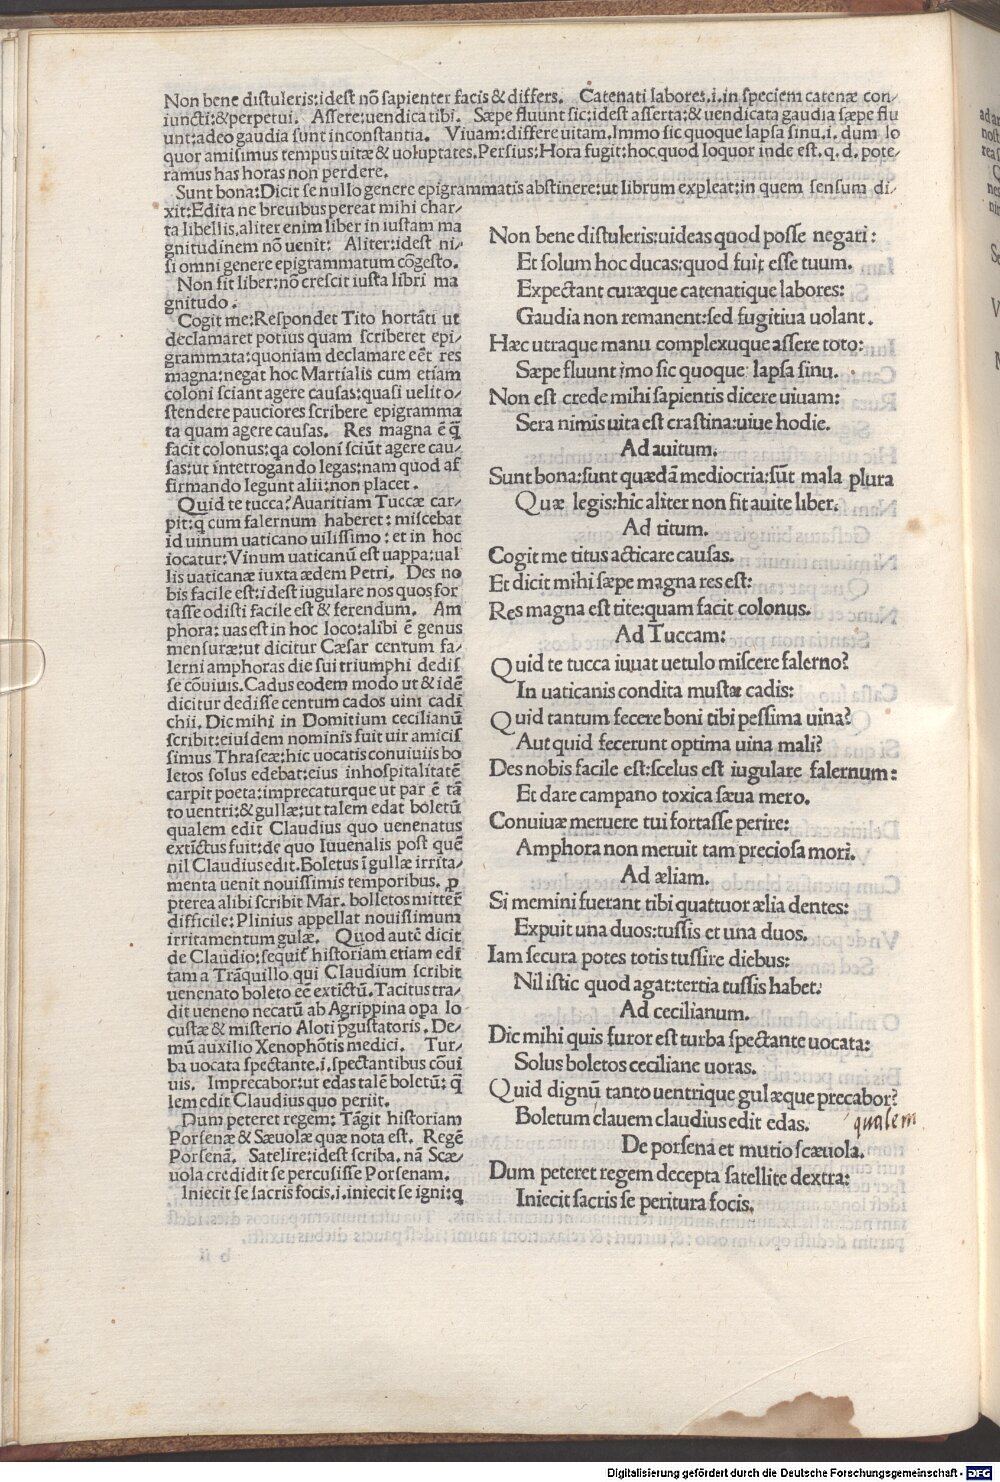 Non bene distuleris:idest nō sapienter facis & differs. Catenati labores.i.in speciem catenæ con⸗
iuncti:& perpetui. Assere:uendica tibi. Sæpe fluunt sic:idest asserta:& uendicata gaudia sæpe flu
unt:adeo gaudia sunt inconstantia. Viuam:differe uitam. Immo sic quoque lapsa sinu.i. dum lo
quor amisimus tempus uitæ & uoluptates. Persius: Hora fugit: hoc quod loquor inde est. q. d. pote⸗
ramus has horas non perdere.
Sunt bona: Dicit se nullo genere epigrammatis abstinere: ut librum expleat: in quem sensum di⸗
xit: Edita ne breuibus pereat mihi char⸗
ta libellis, aliter enim liber in iustam ma
gnitudinem nō uenit: Aliter: idest ni⸗
si omni genere epigrammatum cōgesto.
Non fit liber: nō crescit iusta libri ma
gnitudo.
Cogit me: Respondet Tito hortāti ut
declamaret potius quam scriberet epi⸗
grammata: quoniam declamare eēt res
magna: negat hoc Martialis cum etiam
coloni sciant agere causas: quasi uelit o⸗
stendere pauciores scribere epigramma
ta quam agere causas. Res magna ē q̄
facit colonus: qa coloni sciūt agere cau⸗
sas: ut interrogando legas: nam quod af
firmando legunt alii: non placet.
Quid te tucca? Auaritiam Tuccæ car⸗
pit: q̄ cum falernum haberet: miscebat
id uinum uaticano uilissimo: et in hoc
iocatur: Vinum uaticanū est uappa: ual
lis uaticanæ iuxta ædem Petri. Des no
bis facile est: idest iugulare nos quos for
tasse odisti facile est & ferendum. Am
phora: uas est in hoc loco: alibi ē genus
mensuræ: ut dicitur Cæsar centum fa⸗
lerni amphoras die sui triumphi dedis
se cōuiuis. Cadus eodem modo ut & idē
dicitur dedisse centum cados uini cadi
chii. Dic mihi in Domitium cecilianū
scribit: eiusdem nominis fuit uir amicis
simus Thraseæ: hic uocatis conuiuiis bo
letos solus edebat: eius inhospitalitatē
carpit poeta: imprecaturque ut par ē tā
to uentri: & gullæ: ut talem edat boletū
qualem edit Claudius quo uenenatus
extictus fuit: de quo Iuuenalis post quē
nil Claudius edit. Boletus ī gullæ irrita⸗
menta uenit nouissimis temporibus. p
pterea alibi scribit Mar. bolletos mitterē
difficile: Plinius appellat nouissimum
irritamentum gulæ. Quod autē dicit
de Claudio: sequit historiam etiam edi
tam a Trāquillo qui Claudium scribit
uenenato boleto eē extictū. Tacitus tra⸗
dit ueneno necatū ab Agrippina opa lo
custæ & misterio Aloti pgustatoris. De⸗
mū auxilio Xenophōtis medici. Tur⸗
ba uocata spectante.i. spectantibus cōui
uis. Imprecabor: ut edas talē boletū: q̄
lem edit Claudius quo periit.
Dum peteret regem: Tāgit historiam
Porsenæ & Sæuolæ quæ nota est. Regē
Porsenā. Satelite: idest scriba. nā Scæ⸗
uola credidit se percusisse Porsenam.
Iniecit se sacris focis.i. iniecit se igni: q
Non bene distuleris: uideas quod posse negari:
Et solum hoc ducas: quod fuit esse tuum.
Expectant curæque catenatique labores:
Gaudia non remanent: sed fugitiua uolant.
Hæc utraque manu complexuque assere toto:
Sæpe fluunt imo sic quoque lapsa sinu.
Non est crede mihi sapientis dicere uiuam:
Sera nimis uita est crastina: uiue hodie.
Ad auitum.
Sunt bona: sunt quædā mediocria: sūt mala plura
Quæ legis: hic aliter non fit auite liber.
Ad titum.
Cogit me titus acticare causas.
Et dicit mihi sæpe magna res est:
Res magna est tite: quam facit colonus.
Ad Tuccam:
Quid te tucca iuuat uetulo miscere falerno?
In uaticanis condita musta cadis:
Quid tantum fecere boni tibi pessima uina?
Aut quid fecerunt optima uina mali?
Des nobis facile est: scelus est iugulare falernum:
Et dare campano toxica sæua mero.
Conuiuæ meruere tui fortasse perire:
Amphora non meruit tam preciosa mori.
Ad æliam.
Si memini fuerant tibi quattuor ælia dentes:
Expuit una duos: tussis et una duos.
Iam secura potes totis tussire diebus:
Nil istic quod agat: tertia tussis habet.
Ad cecilianum.
Dic mihi quis furor est turba spectante uocata:
Solus boletos ceciliane uoras.
Quid dignū tanto uentrique gulæque precabor?
Boletum clauem claudius edit edas. qualem
De porsena et mutio scæuola.
Dum peteret regem decepta satellite dextra:
Iniecit sacris se peritura focis.
Digitalisierung gefördert durch die Deutsche Forschungsgemeinschaft - DFG